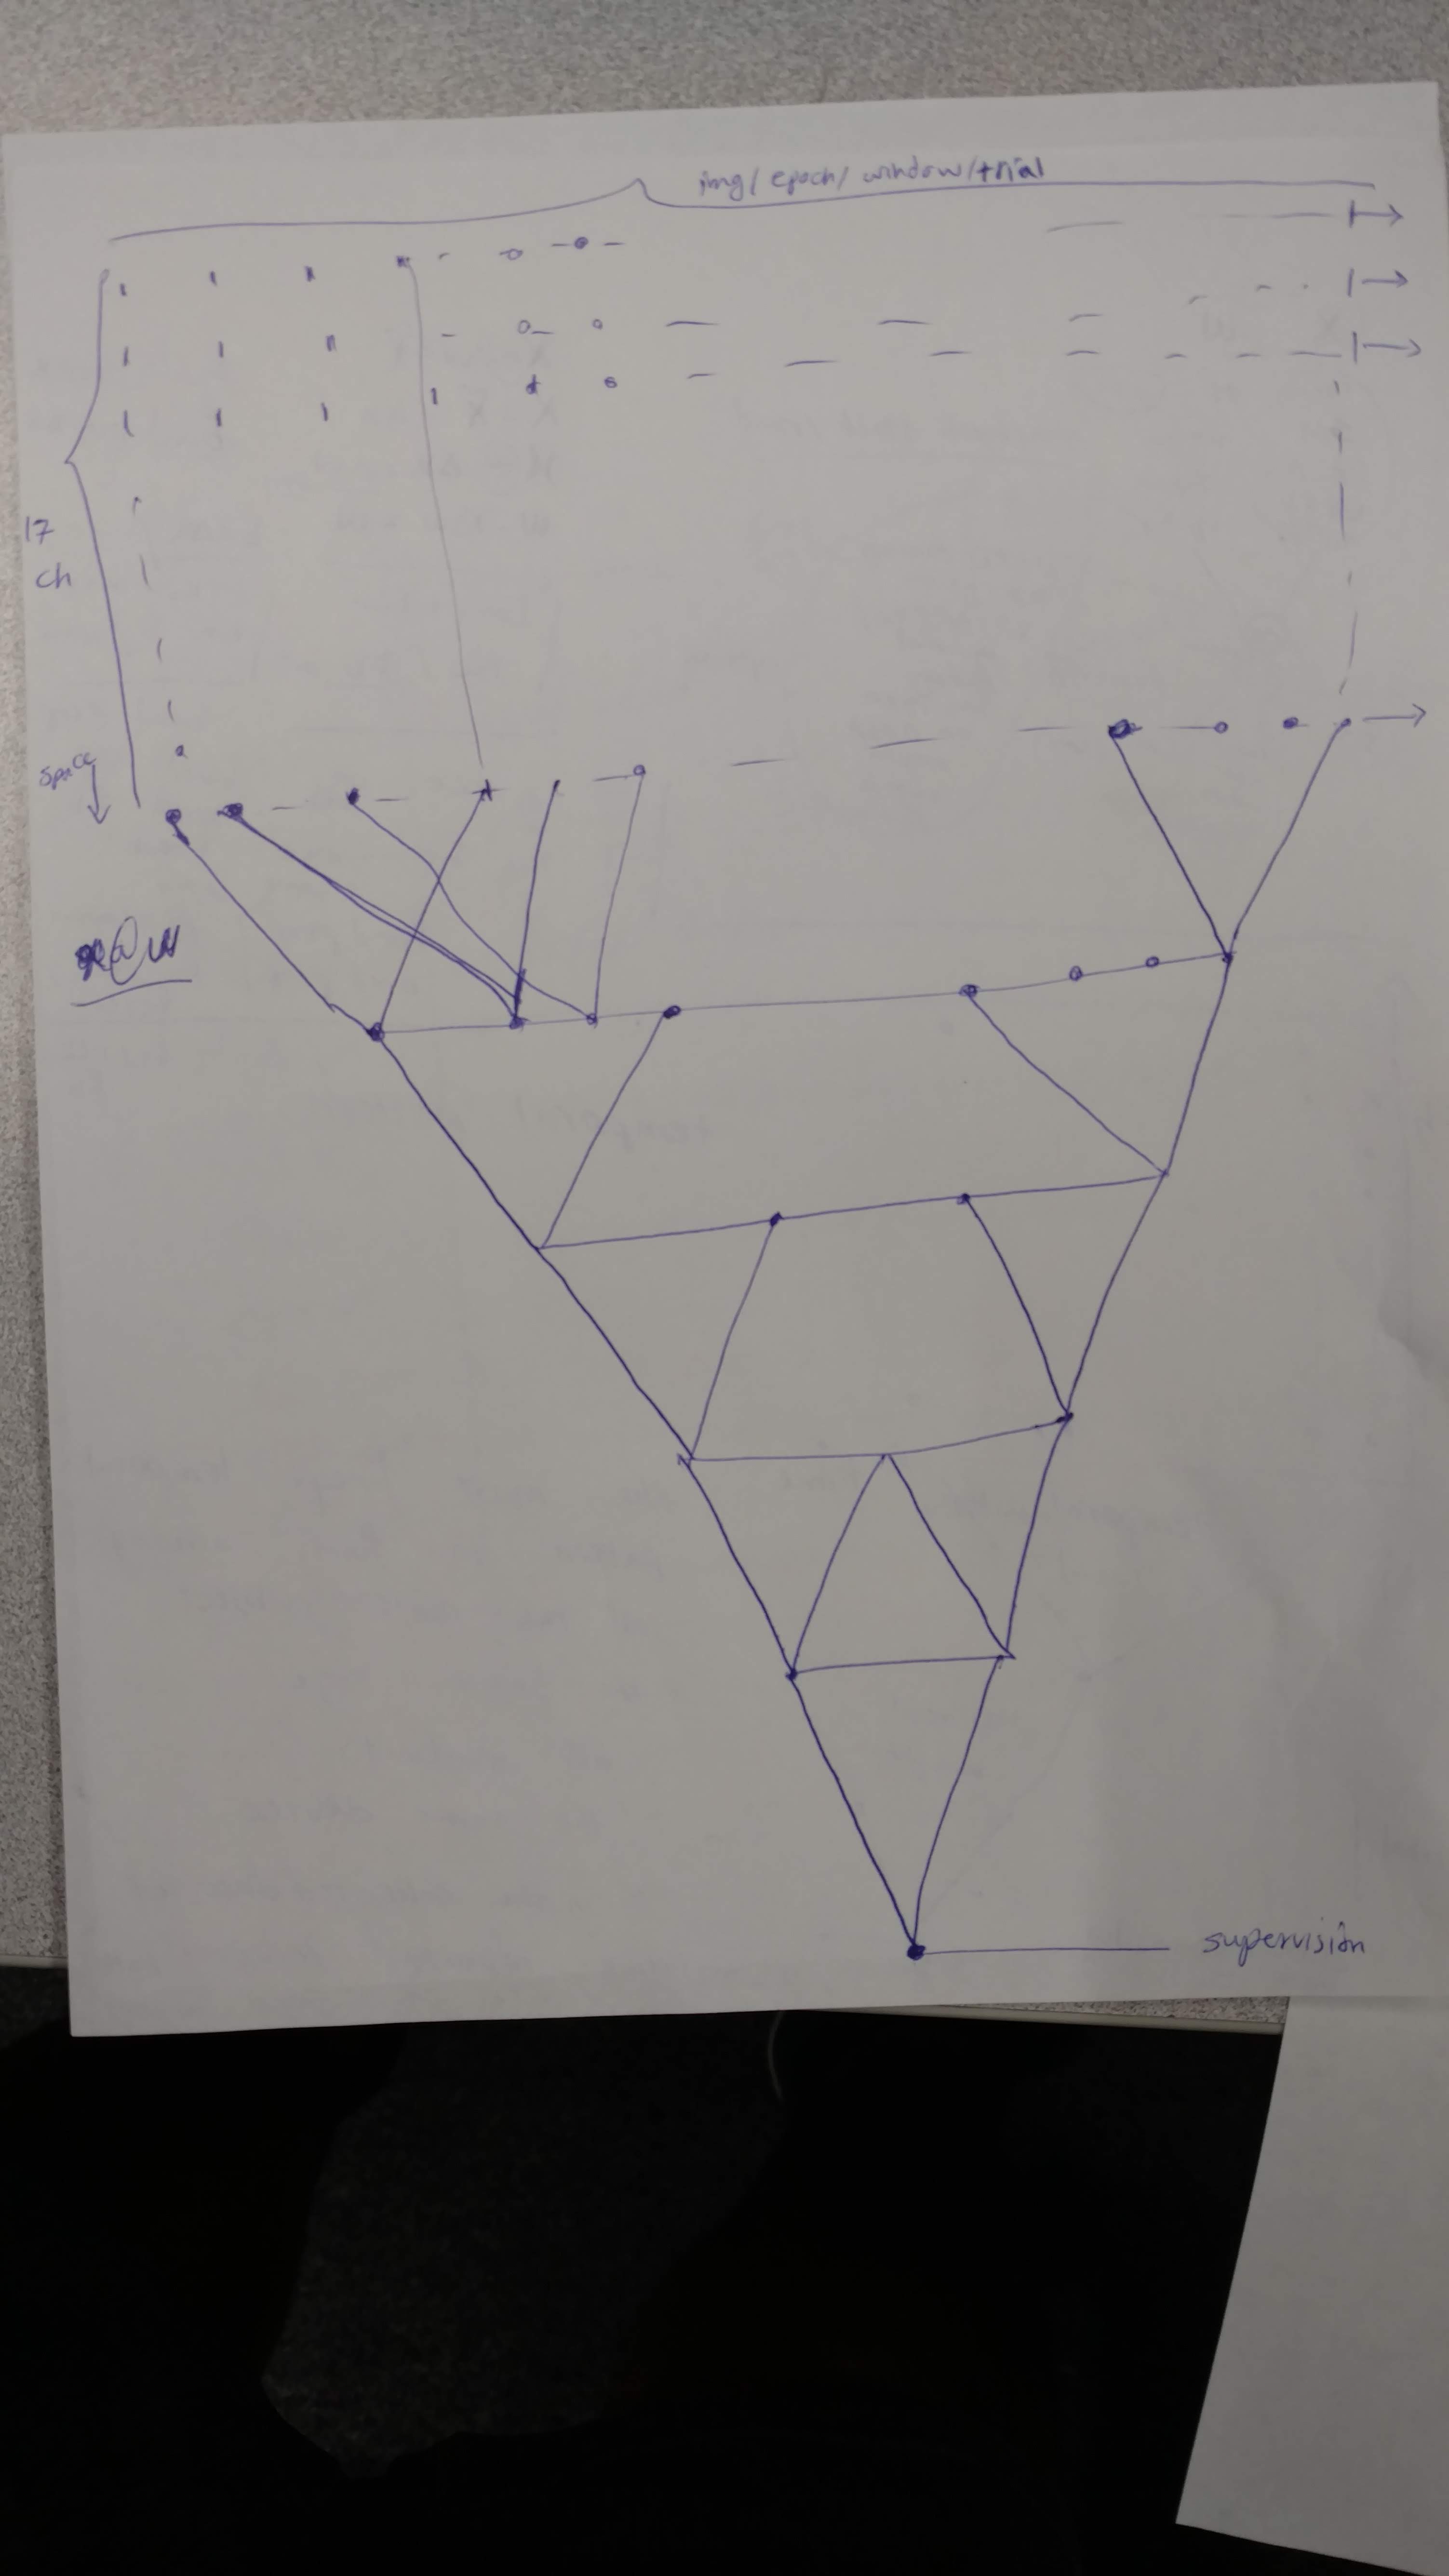 img/ epoch/ window/trial
17
ch
space
supervision